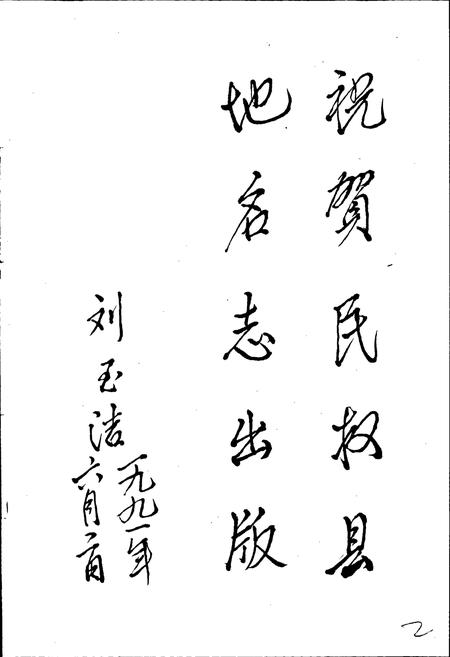 祝贺民权县
地名志出版
刘玉洁
一九九一年
六月一日
2